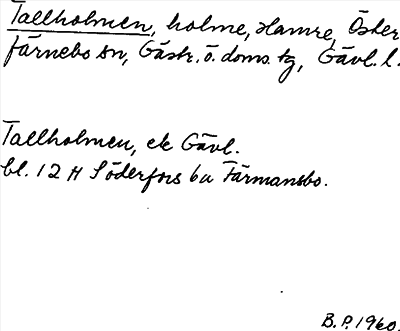 Tallholmen, holme, Hamre, Öster
färnebo sn, Gästr. ö. doms. tg, Gävl. l.
Tallholmen, ek Gävl.
bl. 12 H Söderfors 6a Färmansbo.
B.P. 1960.